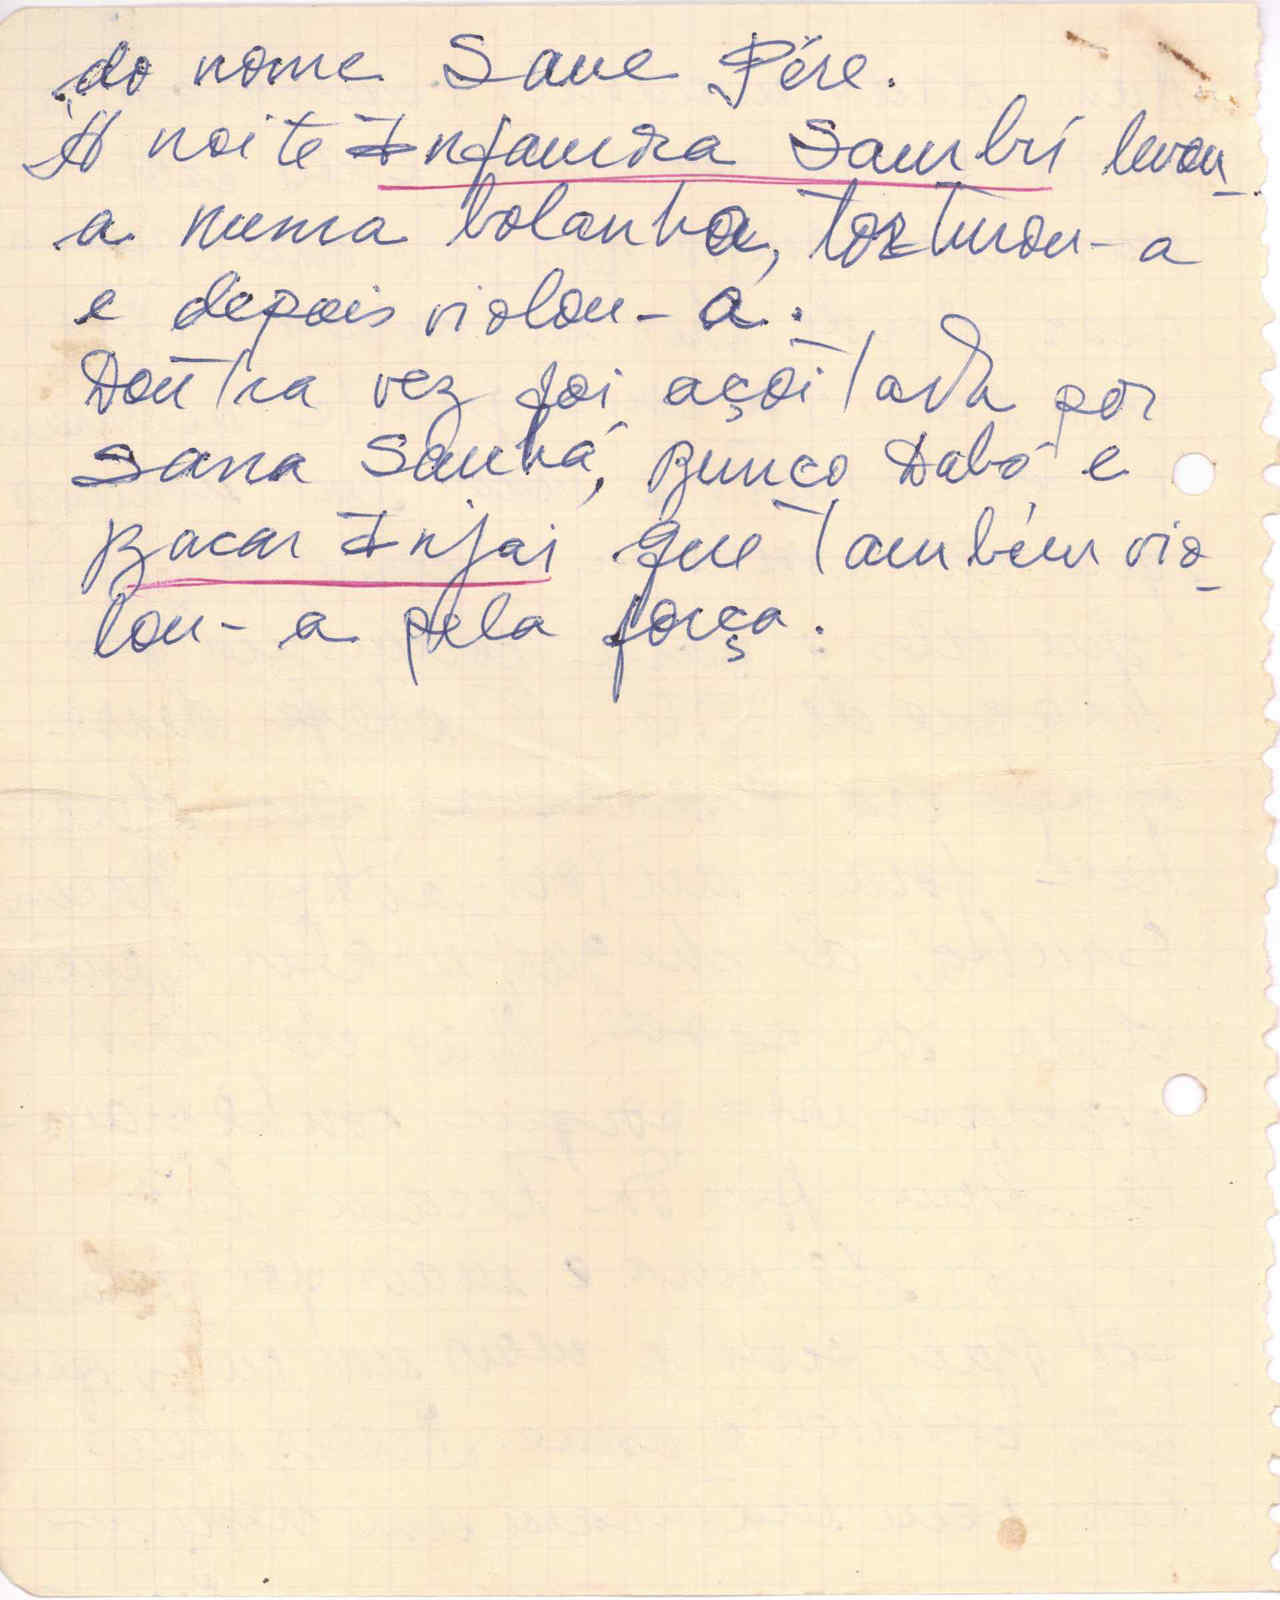 do nome Sane Pére.
À noite Infamra Sambú levou-
a numa bolanha, torturou-a
e depois violou-a.
Doutra vez foi açoitada por
Sana Sanhá, Bunco Dabó e
Bacar Injai que também vio-
lou-a pela força.